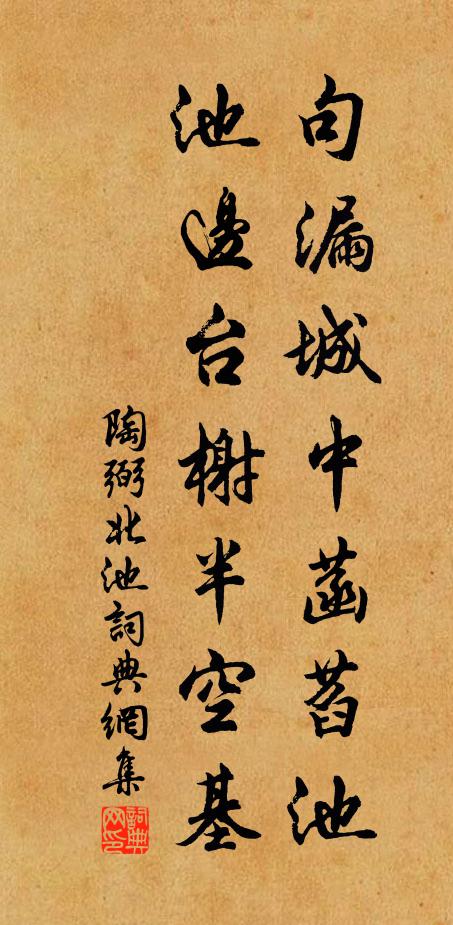 句漏城中菡萏池
池邊台榭半空基
陶弼北池詞典網集
詞典网印